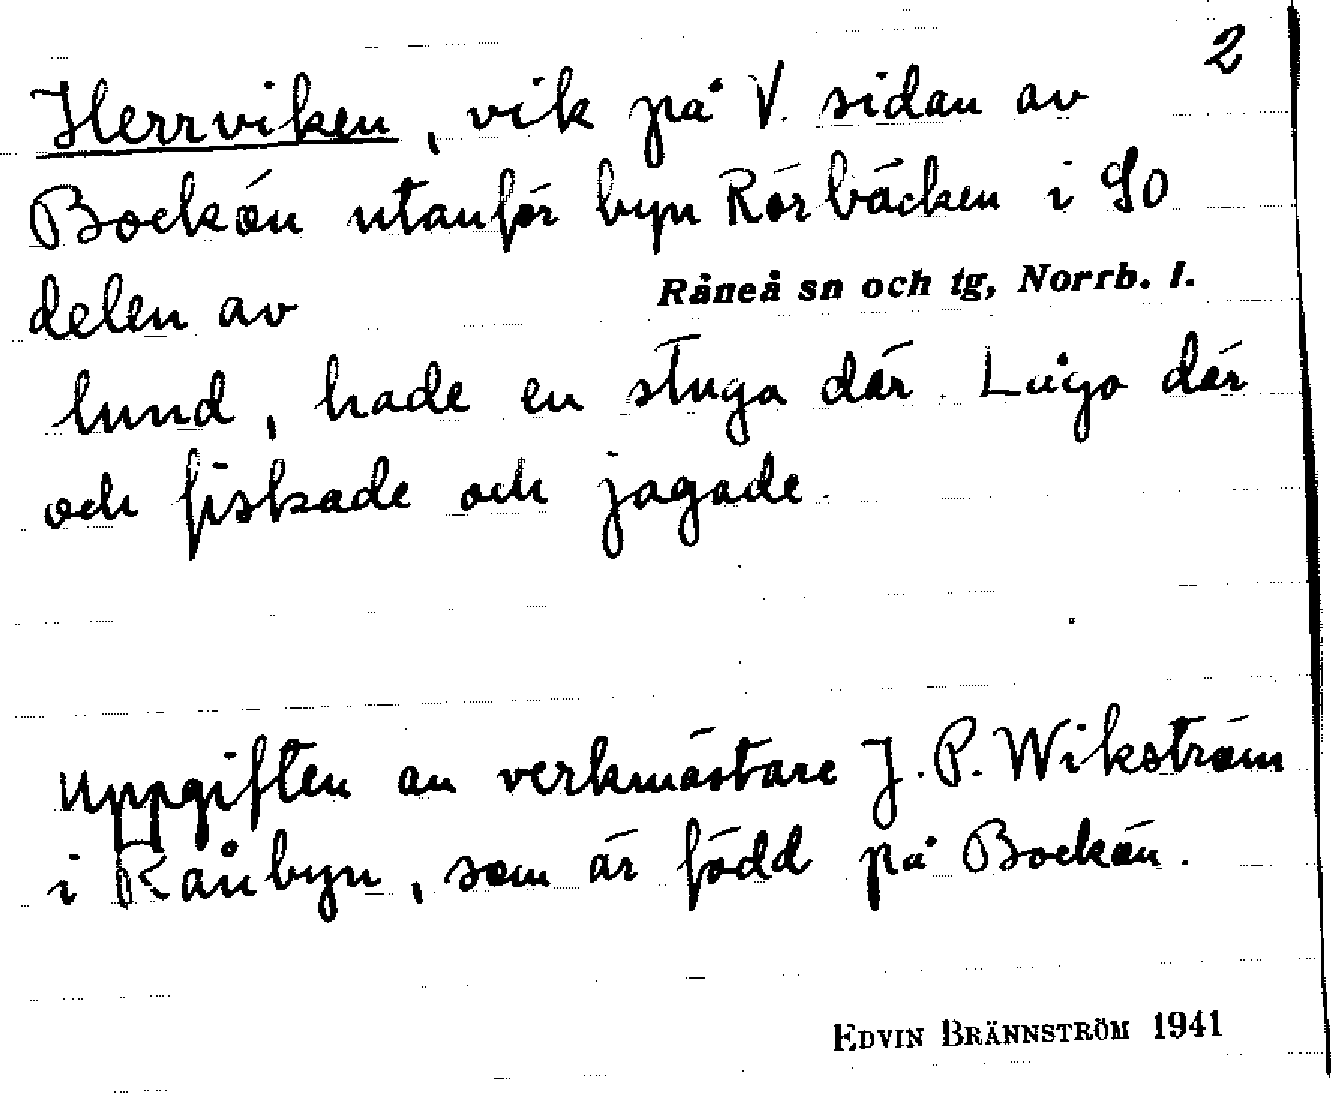 2
Herrviken, vik på V. sidan av
Bockön utanför byn Rörbäcken i SO
delen av Råneå sn och tg, Norrb. l.
lund, hade en stuga där. Lågo där
och fiskade och jagade.
Uppgiften av verkmästare J. P. Wikström
i Rånbyn, som är född på Bockön.
EDVIN BRÄNNSTRÖM 1941